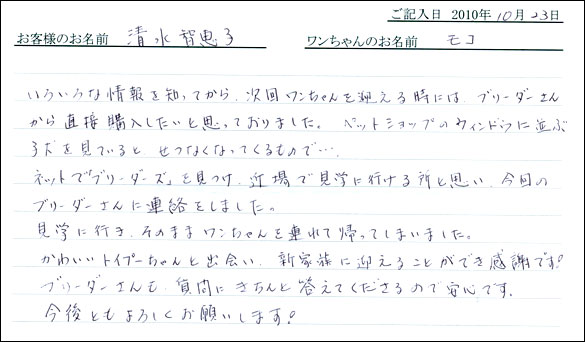 ご記入日 2010年10月23日
お客様のお名前 清水智恵子 ワンちゃんのお名前 モコ
いろいろな情報を知ってから、次回ワンちゃんを迎える時には、ブリーダーさん
から直接購入したいと思っておりました。ペットショップのウィンドウに並ぶ
子犬を見ていると、せつなくなってくるもので…。
ネットで「ブリーダーズ」を見つけ、近場で見学に行ける所と思い、今回の
ブリーダーさんに連絡をしました。
見学に行き、そのままワンちゃんを連れて帰ってしまいました。
かわいいトイプーちゃんと出会い、新家族に迎えることができ感謝です!
ブリーダーさんも、質問にきちんと答えてくださるので安心です。
今後ともよろしくお願いします!